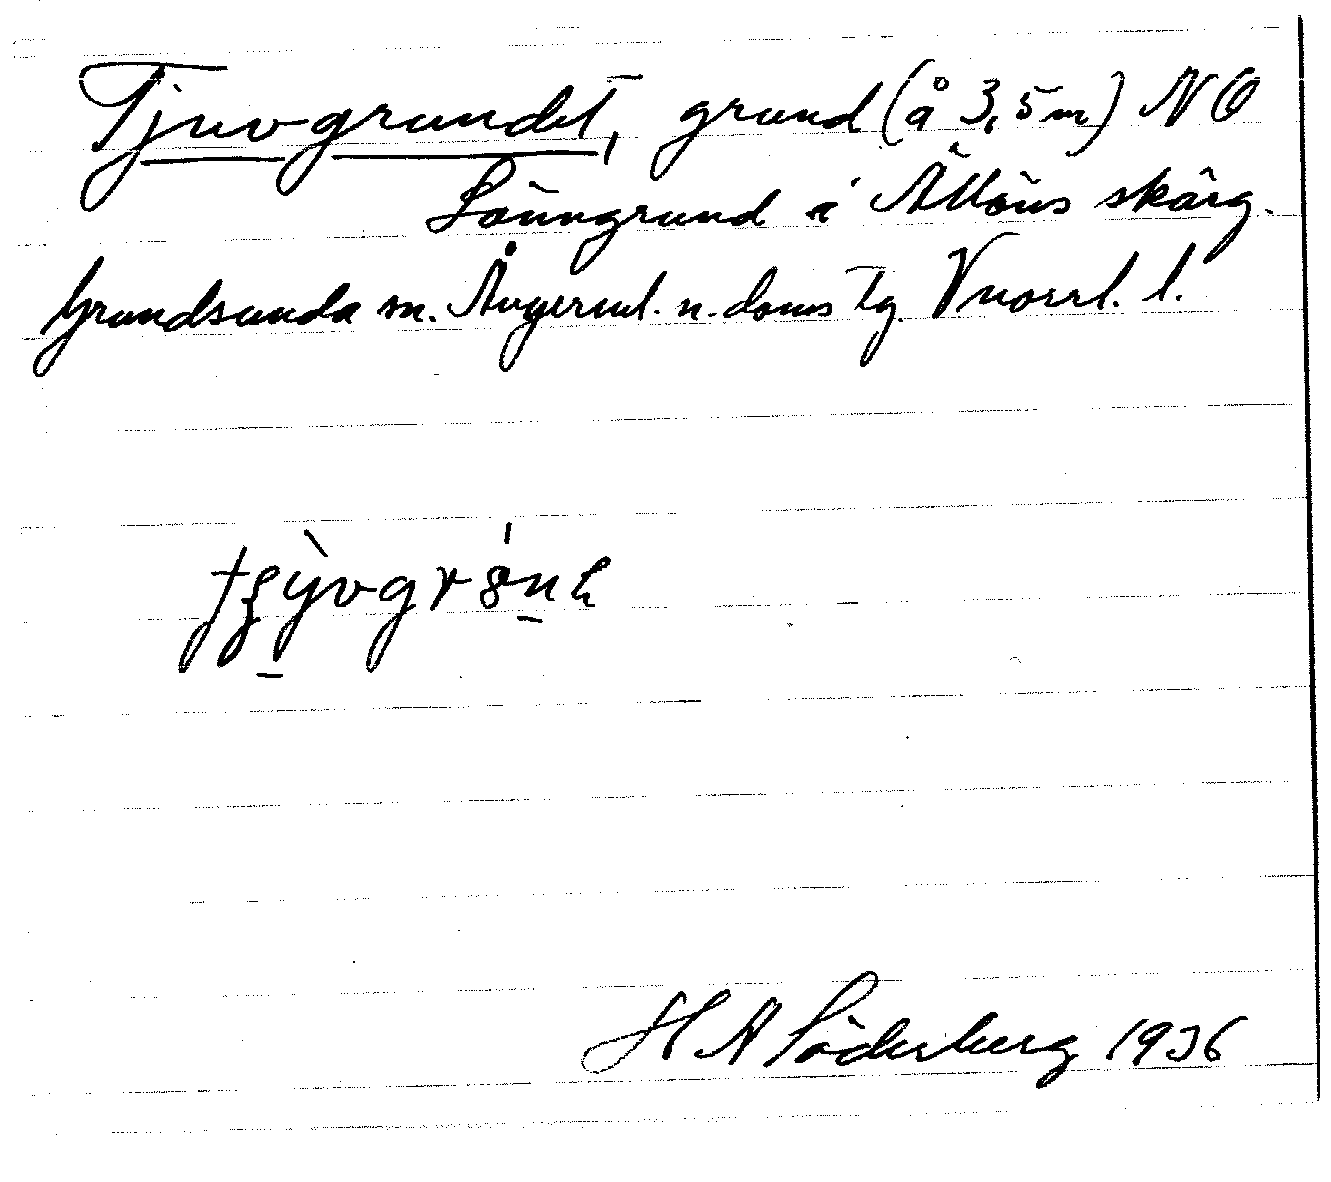 Tjuvgrundet, grund (å 3,5 m) NO
Lönngrund i Ällöns skärg.
Grundsunda sn. Ångerml. n. doms tg. Vnorrl. l.
H A Söderberg 1936